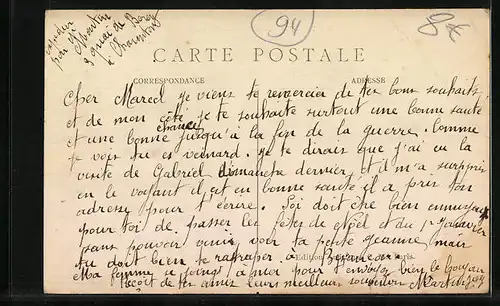 expédier
par Mr
Martin
3 quai de Bercy
à Charenton
94
8€
CARTE POSTALE
CORRESPONDANCE
ADRESSE
Cher Marcel je viens te remercier de tes bons souhaits
et de mon côté je te souhaite surtout une bonne santé
et une bonne chance jusqu'à la fin de la guerre. Comme
je vois tu es veinard. je te dirais que j'ai eu la
visite de Gabriel dimanche dernier, et il m'a surpris
en le voyant il est en bonne santé il a pris ton
adresse pour t'écrire. Toi doit être bien ennuyeux
pour toi de passer les fêtes de Noël et du 1er Janvier
sans pouvoir venir voir ta petite Jeanne, mais
tu doit bien te rattraper à
Edition
Paris
Ma femme se joint à moi pour t'envoyer bien le bonjour
Reçoit de tes amis leurs meilleurs